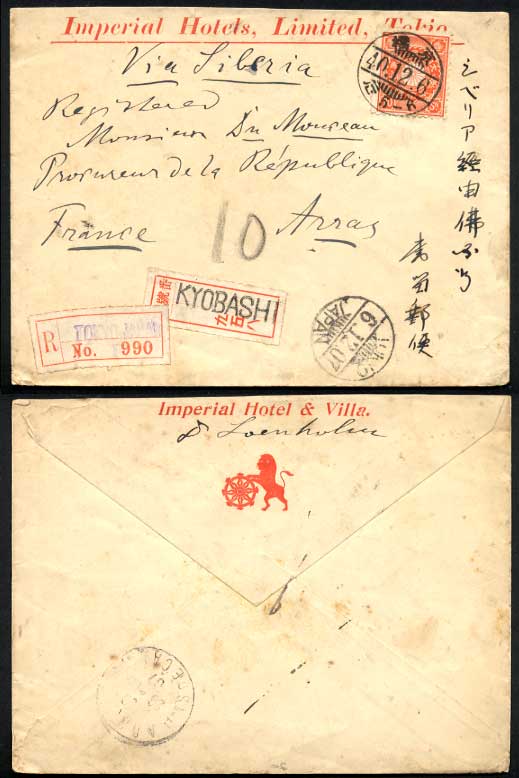 Imperial Hotels, Limited, Tokio.
Via Siberia
Registered
Monsieur Du Mouceau
Procureur de la République
Arras
France
10
シベリア経由佛国行
書留郵便
40.12.6
KYOBASHI
R
TOKYO JAPAN
No. 990
TOKIO
6.12.07
JAPAN
Imperial Hotel & Villa.
Dr Loenholm